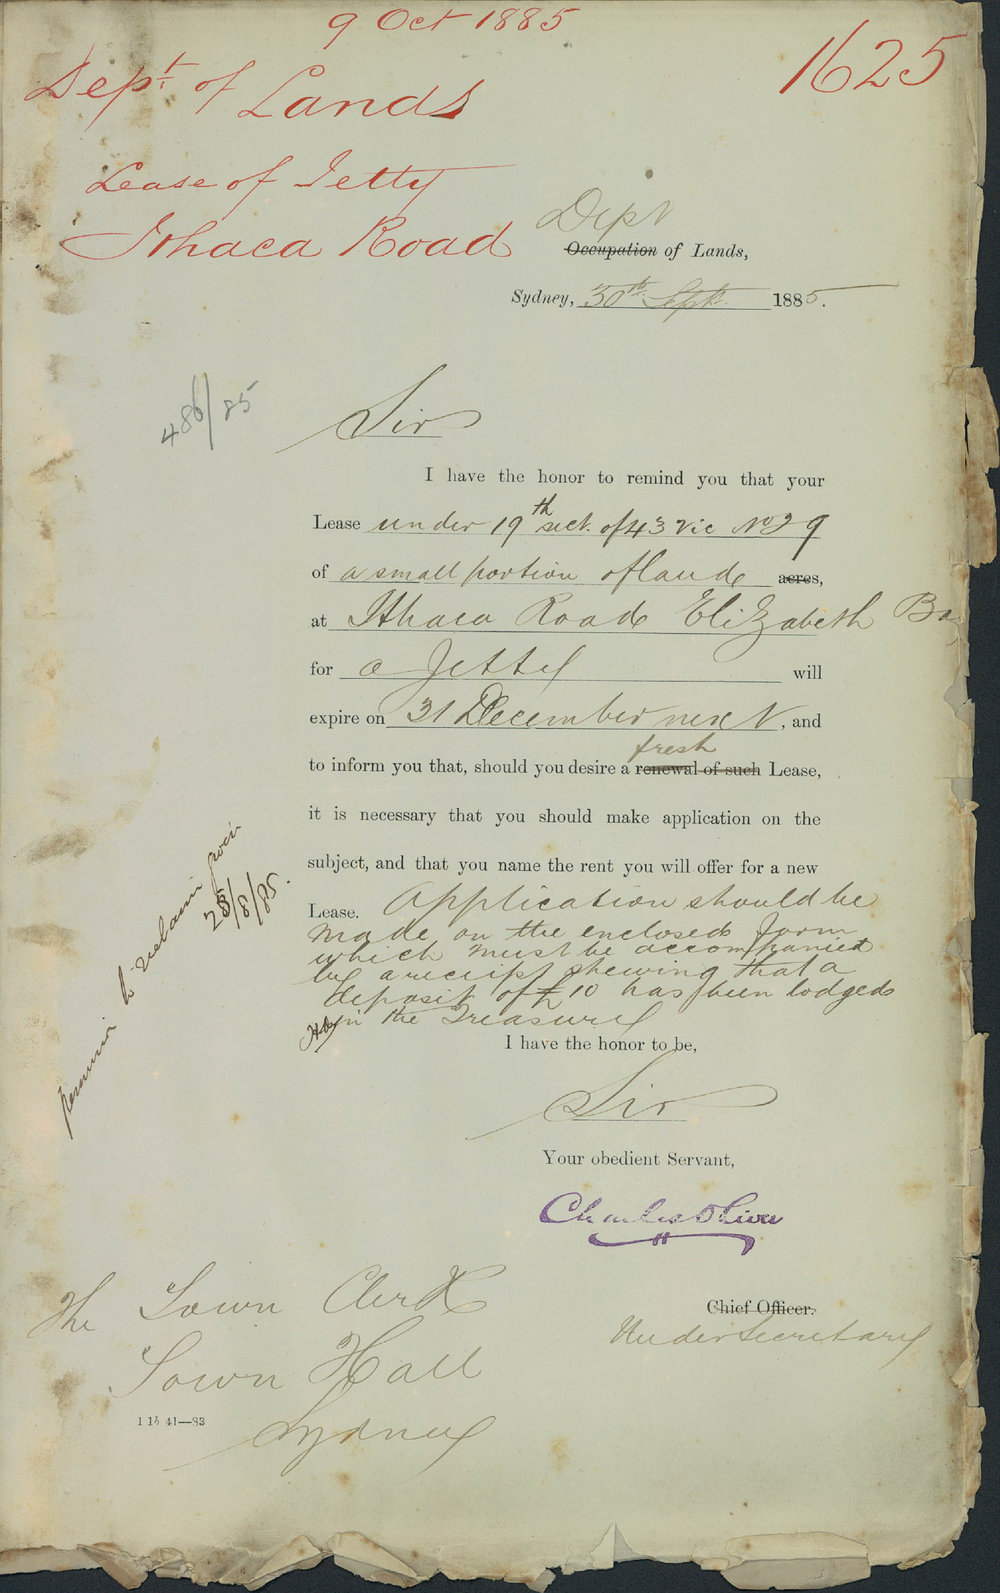 9 Oct 1885
1625
Dept of Lands
Lease of Jetty
Ithaca Road
Dept
Occupation of Lands,
Sydney, 30th Sept. 1885.
486/85
Sir
I have the honor to remind you that your
Lease under 19th sect. of 43 Vic No 29
of a small portion of land acres,
at Ithaca Road Elizabeth Ba
for a Jetty will
expire on 31 December next, and
fresh
to inform you that, should you desire a renewal of such Lease,
it is necessary that you should make application on the
subject, and that you name the rent you will offer for a new
Lease. Application should be
made on the enclosed form
which must be accompanied
by a receipt shewing that a
deposit of £10 has been lodged
in the Treasury
I have the honor to be,
Sir
Your obedient Servant,
Charles Oliver
Chief Officer.
Under Secretary
The Town Clerk
Town Hall
Sydney
1 1b 41—83
28/8/85.